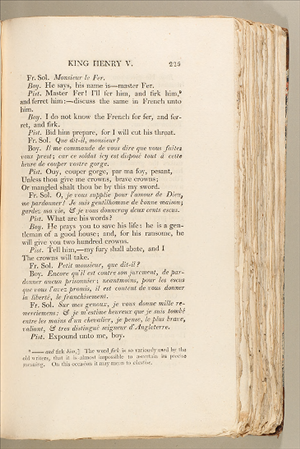 KING HENRY V. 223
Fr. Sol. Monsieur le Fer.
Boy. He says, his name is—master Fer.
Pist. Master Fer! I'll fer him, and firk him,*
and ferret him:—discuss the same in French unto
him.
Boy. I do not know the French for fer, and fer-
ret, and firk.
Pist. Bid him prepare, for I will cut his throat.
Fr. Sol. Que dit-il, monsieur?
Boy. Il me commande de vous dire que vous faites
vous prest; car ce soldat icy est disposé tout à cette
heure de couper vostre gorge.
Pist. Ouy, couper gorge, par ma foy, pesant,
Unless thou give me crowns, brave crowns;
Or mangled shalt thou be by this my sword.
Fr. Sol. O, je vous supplie pour l'amour de Dieu,
me pardonner! Je suis gentilhomme de bonne maison;
gardez ma vie, & je vous donneray deux cents escus.
Pist. What are his words?
Boy. He prays you to save his life: he is a gen-
tleman of a good house; and, for his ransome, he
will give you two hundred crowns.
Pist. Tell him,—my fury shall abate, and I
The crowns will take.
Fr. Sol. Petit monsieur, que dit-il?
Boy. Encore qu'il est contre son jurement, de par-
donner aucun prisonnier; neantmoins, pour les escus
que vous l'avez promis, il est content de vous donner
la liberté, le franchisement.
Fr. Sol. Sur mes genoux, je vous donne mille re-
merciemens: & je m'estime heureux que je suis tombé
entre les mains d'un chevalier, je pense, le plus brave,
valiant, & tres distingué seigneur d'Angleterre.
Pist. Expound unto me, boy.
* —— and firk him,] The word firk is so variously used by the
old writers, that it is almost impossible to ascertain its precise
meaning. On this occasion it may mean to chastise.